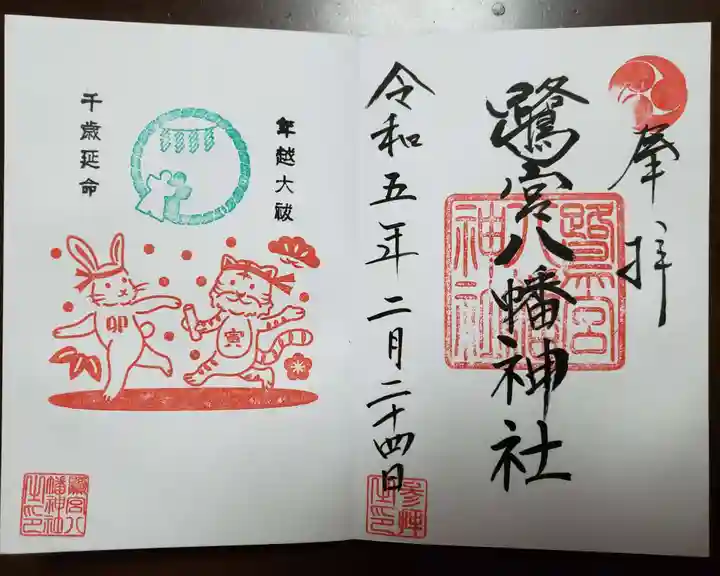 奉拝
鷺宮八幡神社
鷺宮八幡神社
令和五年二月二十四日
参拝
年越大祓
千歳延命
卯
寅
鷺宮八
幡神社